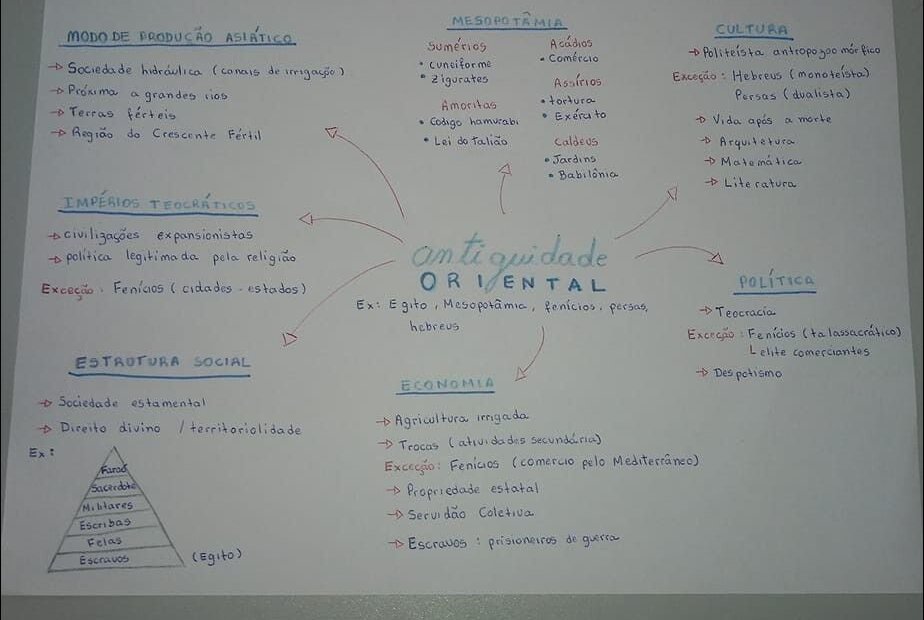 MODO DE PRODUÇÃO ASIÁTICO
→ Sociedade hidráulica (canais de irrigação)
→ Próxima a grandes rios
→ Terras férteis
→ Região do Crescente Fértil
MESOPOTÂMIA
Sumérios
• Cuneiforme
• Zigurates
Amoritas
• Codigo hamurabi
• Lei do talião
Acádios
• Comércio
Assírios
• tortura
• Exército
Caldeus
• Jardins
• Babilônia
CULTURA
→ Politeísta antropozoomórfico
Exceção: Hebreus (monoteísta)
Persas (dualista)
→ Vida após a morte
→ Arquitetura
→ Matemática
→ Literatura
IMPÉRIOS TEOCRÁTICOS
→ civilizações expansionistas
→ política legitimada pela religião
Exceção: Fenícios (cidades-estados)
antiguidade
ORIENTAL
Ex: Egito, Mesopotâmia, fenícios, persas,
hebreus
POLÍTICA
→ Teocracia
Exceção: Fenícios (talassacrático)
L elite comerciantes
→ Despotismo
ESTRUTURA SOCIAL
→ Sociedade estamental
→ Direito divino / territoriolidade
Ex:
Faraó
Sacerdote
Militares
Escribas
Felas
Escravos
(Egito)
ECONOMIA
→ Agricultura irrigada
→ Trocas (atividades secundária)
Exceção: Fenícios (comercio pelo Mediterrâneo)
→ Propriedade estatal
→ Servidão Coletiva
→ Escravos: prisioneiros de guerra